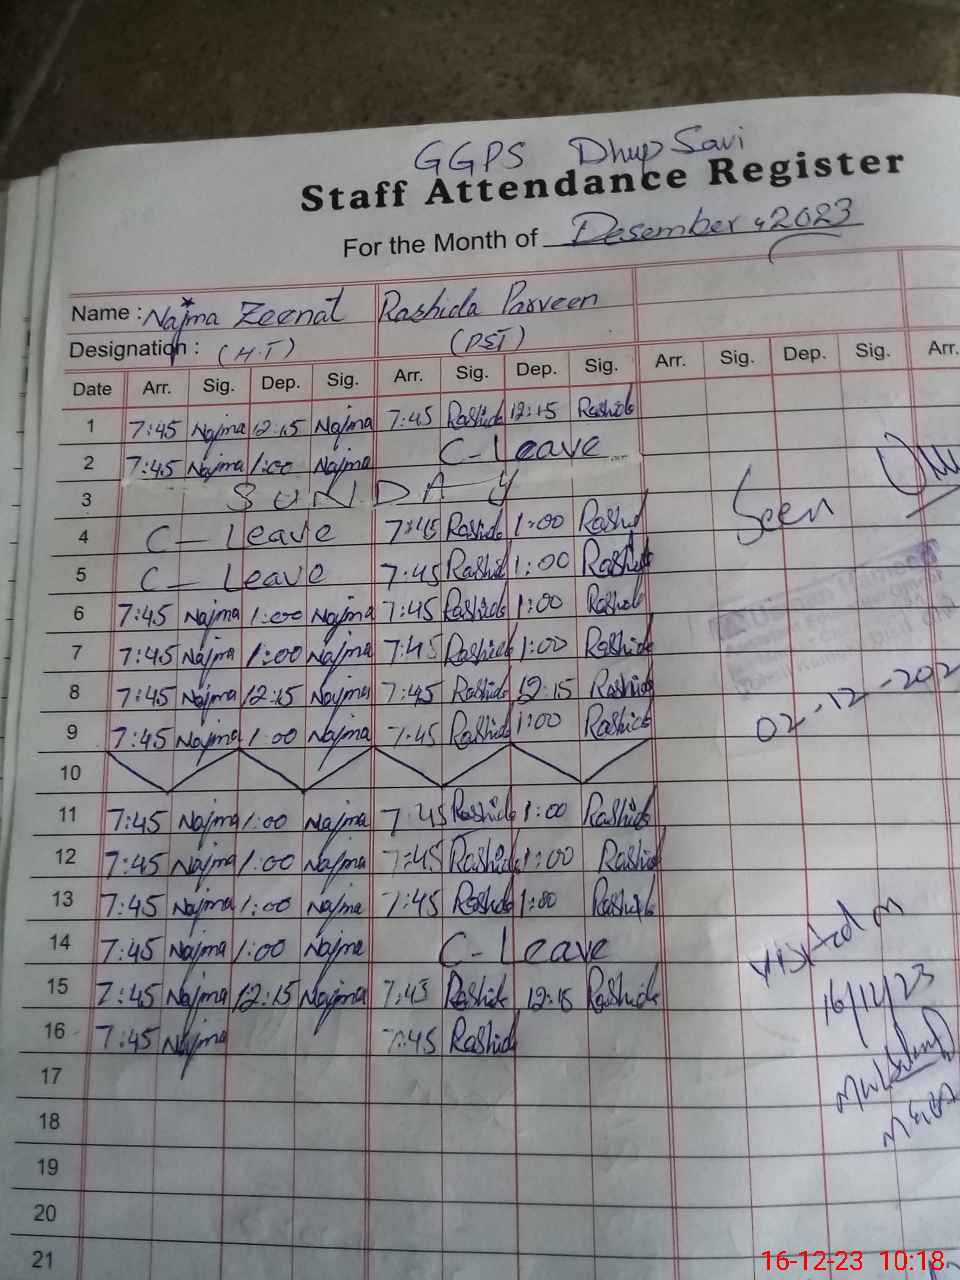 GGPS Dhup Savi
Staff Attendance Register
For the Month of Desember, 2023
Name: Najma Zeenat Rashida Parveen
Designation: (H.T) (PST)
Date Arr. Sig. Dep. Sig. Arr. Sig. Dep. Sig. Arr. Sig. Dep. Sig. Arr.
1 7:45 Najma 12:15 Najma 7:45 Rashida 12:15 Rashida
2 7:45 Najma 1:00 Najma C-Leave
3 SUNDAY
4 C-Leave 7:45 Rashida 1:00 Rashid
5 C-Leave 7:45 Rashid 1:00 Rashida
6 7:45 Najma 1:00 Najma 7:45 Rashida 1:00 Rashida
7 7:45 Najma 1:00 Najma 7:45 Rashida 1:00 Rashida
8 7:45 Najma 12:15 Najma 7:45 Rashida 12:15 Rashida
9 7:45 Najma 1:00 Najma 7:45 Rashida 1:00 Rashida
10
11 7:45 Najma 1:00 Najma 7:45 Rashida 1:00 Rashida
12 7:45 Najma 1:00 Najma 7:45 Rashida 1:00 Rashid
13 7:45 Najma 1:00 Najma 7:45 Rashda 1:00 Rashida
14 7:45 Najma 1:00 Najma C-Leave
15 7:45 Najma 12:15 Najma 7:45 Rashida 12:15 Rashida
16 7:45 Najma 7:45 Rashid
17
18
19
20
21
Seen
02-12-202
visited on
16/12/23
16-12-23 10:18